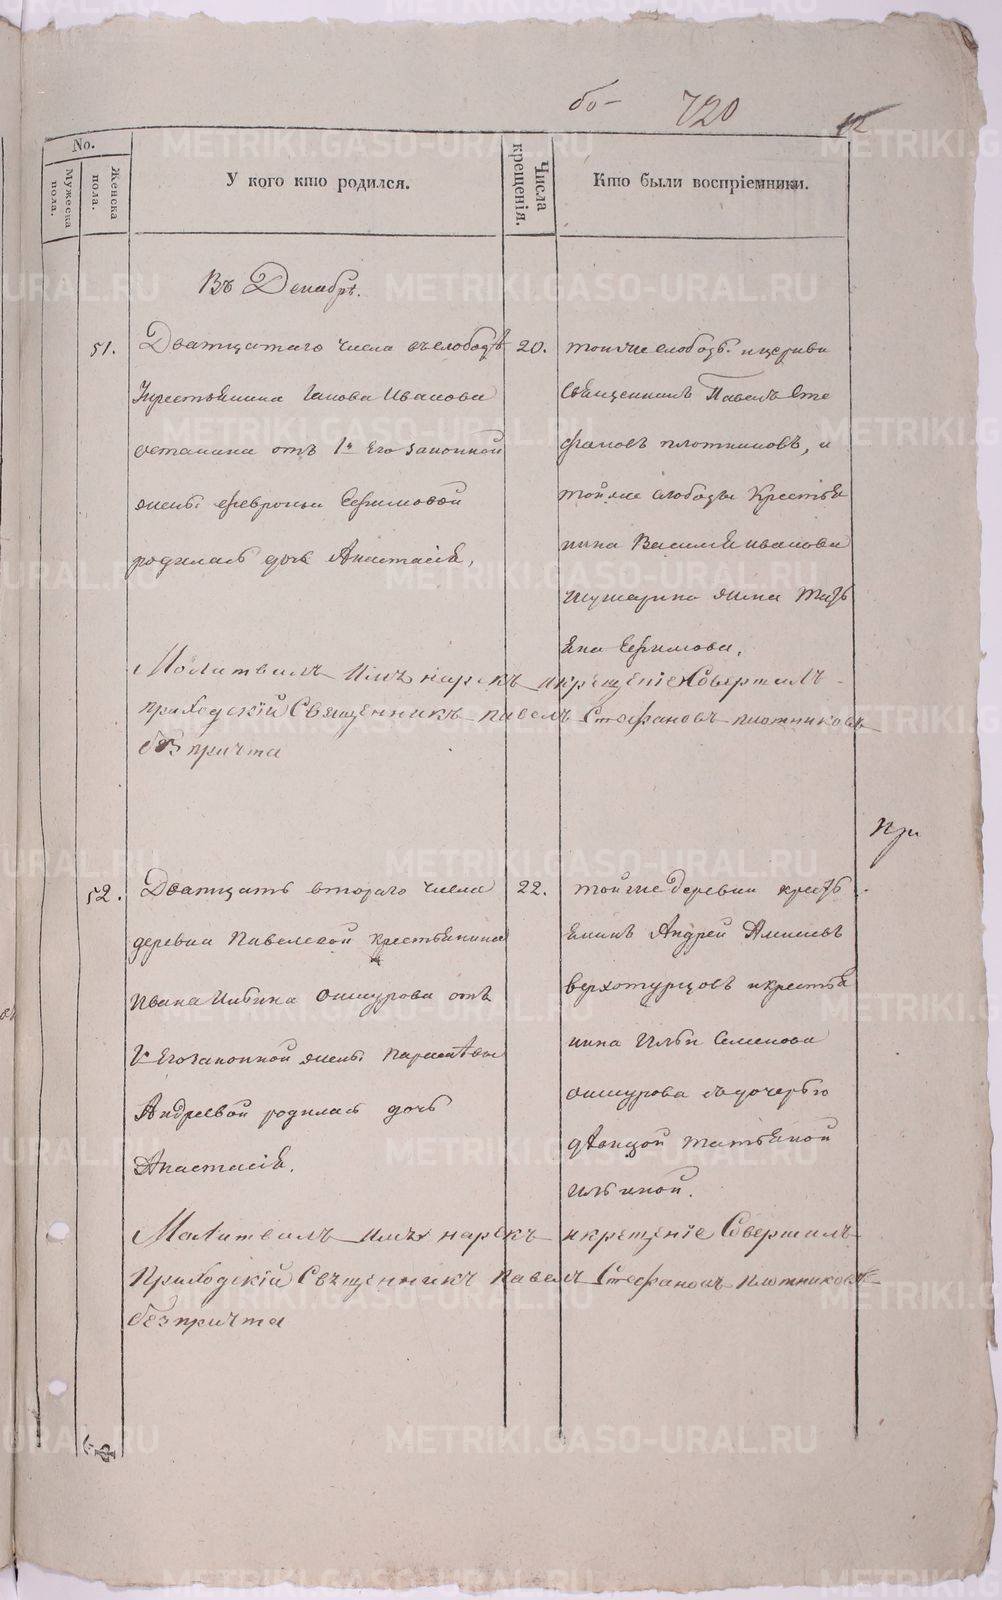 бо- 720
12
No.
Мужеска пола.
Женска пола.
У кого кто родился.
Числа крещенія.
Кто были воспріемники.
Въ Декабрѣ.
51.
Дватцатаго числа въ слободѣ
Укрестьянина Иакова Иванова
останина отъ 1й Его законной
жены февроньи Ефимовой
родилась дочь Анастасія,
20.
тойже слобод. ицеркви
Священникъ Павелъ Сте
фановъ плотниковъ, и
тойже слободы Крестья
нина Василья иванова
шушарина жена Тать
яна Ефимова.
Молитвилъ Имъ нарекъ икрещеніе Совершилъ
приходскій Священникъ павелъ Стефановъ плотниковъ
безпричта
52.
Дватцать втораго числа
деревни Павловой крестьянина
Ивана Ильина Ошкурова отъ
1й Его законной жены парасковьи
Андреевой родилась дочь
Анастасія.
22.
тойже деревни кресть
янинъ Андрей
верхотурцовъ икрестья
нина Ильи Семенова
ошкурова съдочерью
дѣвицой татьяной
ильиной.
Молитвилъ имъ нарекъ икрещеніе Совершилъ
Приходскій Свѣщенникъ павелъ Стефановъ плотниковъ
безпричта
При
METRIKI.GASO-URAL.RU